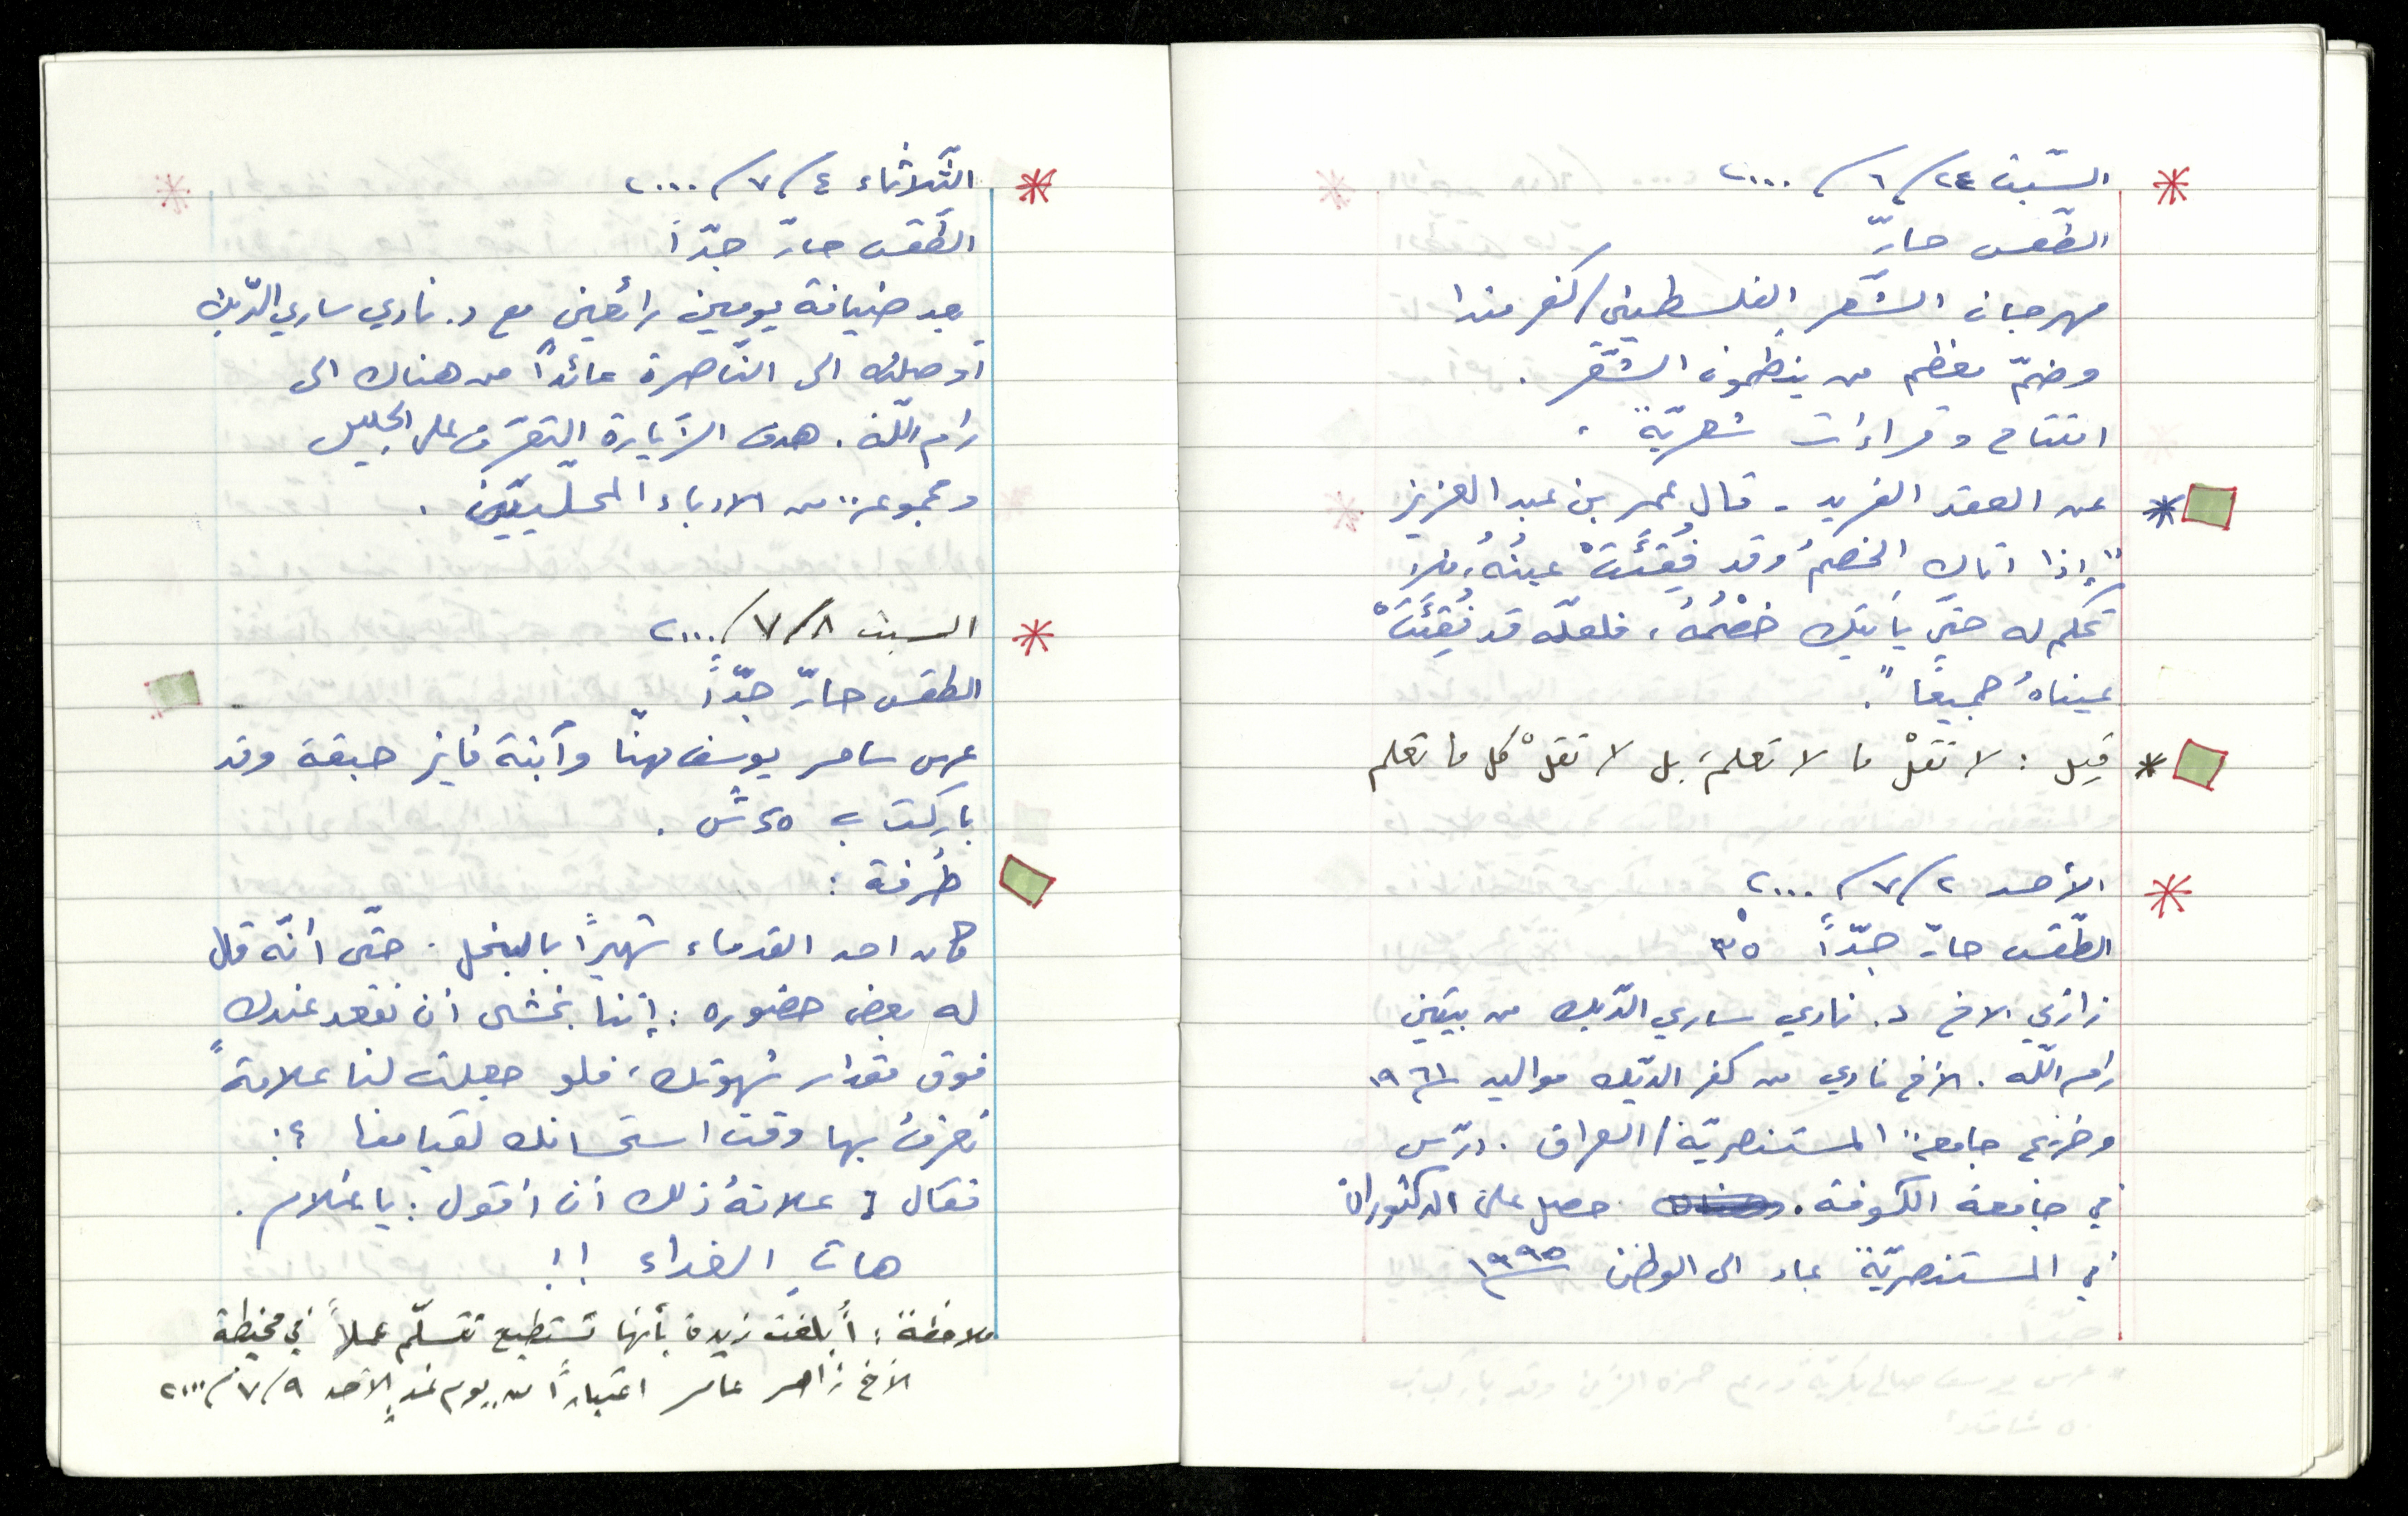 السّبت ٢٤/٦/٢٠٠٠
الطّقس حارّ
مهرجان الشّعر الفلسطيني/كفر مندا
وضمّ معظم من ينظمون الشّعر.
افتتاح وقراءات شعريّة.
عن العقد الفريد - قال عمر بن عبد العزيز
"إذا اتاك الخصمُ وقد فُقِئَتْ عينُهُ، فلا
تحكم له حتّى يأتيك خصْمُهُ، فلعلّه قد فُقِئَتْ
عيناهُ جميعًا".
قيل: لا تقلْ ما لا تعلم، بل لا تقلْ كل ما تعلم
الأحد ٢/٧/٢٠٠٠
الطّقس حارّ جدّاً ٣٥°
زارني الاخ د. نادي ساري الدّيك من بيتين
رام اللّه. الأخ نادي من كفر الدّيك مواليد ١٩٦١
وخريج جامعة المستنصريّة/العراق. درّس
في جامعة الكوفة. حصل على الدكتوراة
في المستنصريّة عاد الى الوطن ١٩٩٥
الثّلاثاء ٤/٧/٢٠٠٠
الطّقس حارّ جدّاً
بعد ضيافة يومين رائعين مع د. نادي ساري الدّيك
أوصلته الى النّاصرة عائداً من هناك الى
رام اللّه. هدف الزّيارة التعرّف على الجليل
ومجموعة من الادباء المحلّيّين.
السبت ٨/٧/٢٠٠٠
الطقس حارّ جدّاً
عرس سامر يوسف مهنّا وآبنة فايز حبقة وقد
باركت ب ٢٥٠ش.
طُرفة:
كان احد القدماء شهيرًا بالبخل. حتّى أنّه قال
له بعض حضوره: إننا نخشى أن نقعد عندك
فوق مقدار شهوتك، فلو جعلت لنا علامةً
نعرفُ بها وقت استحسانك لقيامنا؟!
فقال: علامةُ ذلك أن أقول: يا غلام.
هاتِ الغداء!!
ملاحظة: أُبلغت زيدة بأنها تستطيع تتسلّم عملاً في مخيطة
الأخ زاهر عامر اعتباراً من يوم غدٍ الأحد ٩/٧/٢٠٠٠